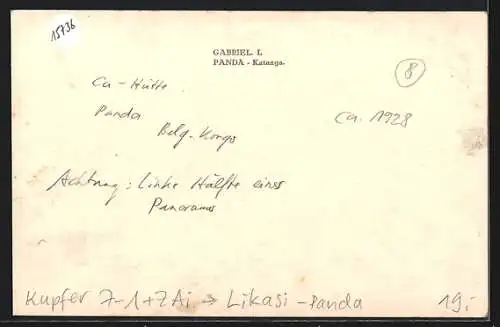 15736
GABRIEL. L
PANDA - Katanga.
8
Cu-Hütte
Panda
Belg.-Kongo
ca. 1928
Achtung: linke Hälfte eines
Panoramas
Kupfer 7-1+2Ai → Likasi-Panda
19,-